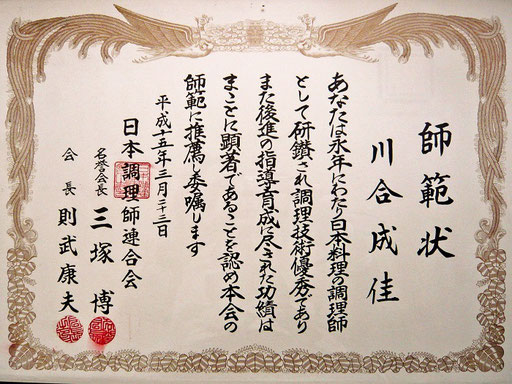 師範状
川合成佳
あなたは永年にわたり日本料理の調理師
として研鑚され調理技術優秀であり
また後進の指導育成に尽された功績は
まことに顕著であることを認め本会の
師範に推薦し委嘱します
平成十五年三月二十三日
日本調理師連合会
名誉会長 三塚博
会長 則武康夫